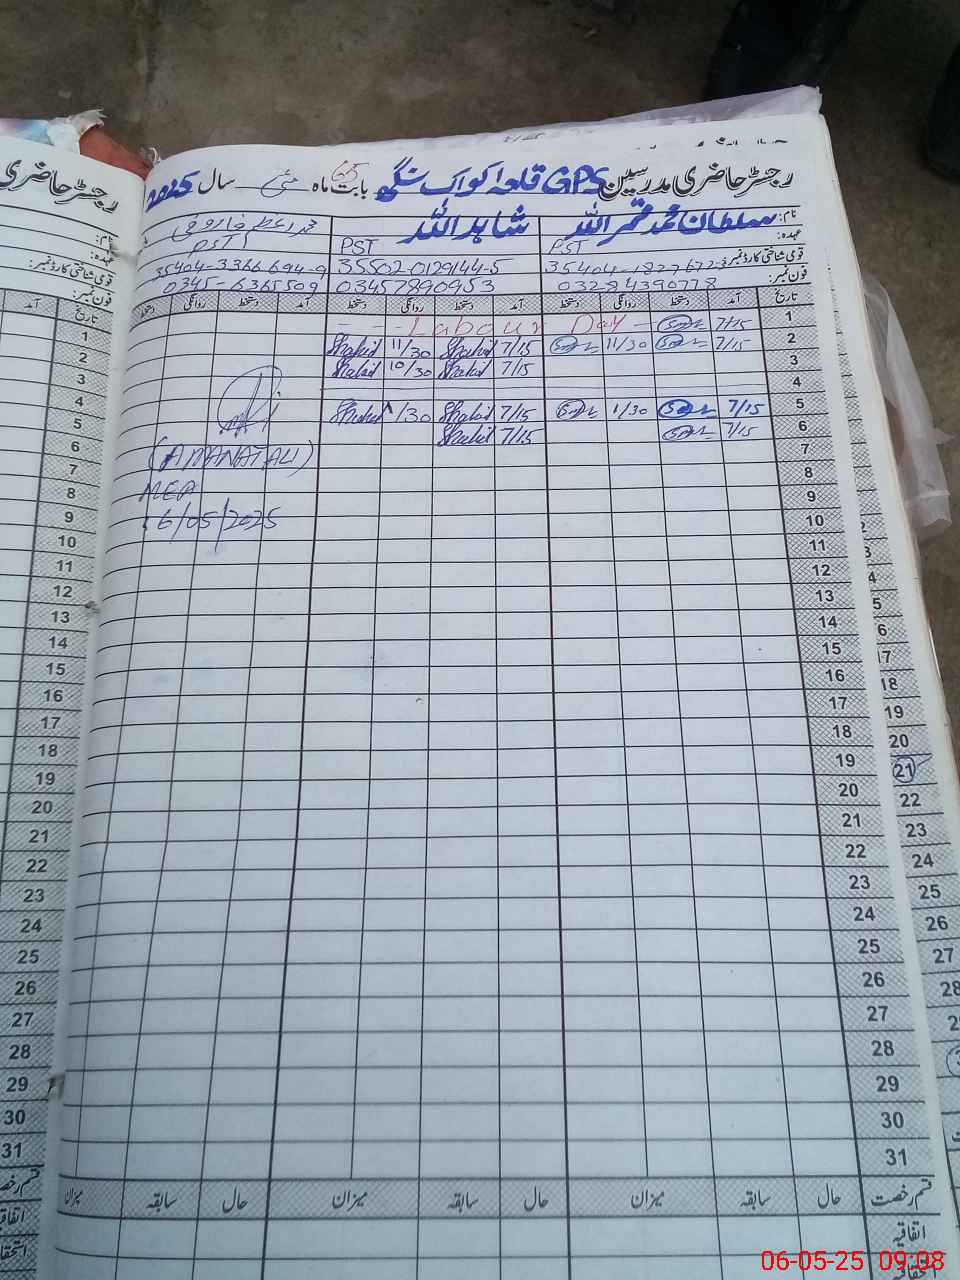 رجسٹر حاضری مدرسین GPS قلعہ اکواک سنگھ بابت ماہ مئی 05 سال 2025
نام: سلطان محمد قمر اللہ شاہد اللہ
عہدہ: PST PST PST
قومی شناختی کارڈ نمبر: 35502-0129144-5 35404-3366694-9
فون نمبر: 03284390778 03457890953 0345-6365509
تاریخ آمد دستخط روانگی دستخط آمد دستخط روانگی دستخط آمد دستخط روانگی دستخط
1 7/15 - Labour Day - - -
2 7/15 11/30 7/15 Shahid 11/30 Shahid
3 7/15 Shahid 10/30 Shahid
4
5 7/15 1/30 7/15 Shahid 1/30 Shahid
6 7/15 7/15 Shahid
(AMANAT ALI)
MEA
6/05/2025
7
8
9
10
11
12
13
14
15
16
17
18
19
20
21
22
23
24
25
26
27
28
29
30
31
قسم رخصت حال سابقہ میزان حال سابقہ میزان حال سابقہ میزان
اتفاقیہ
رجسٹر حاضری
نام:
عہدہ:
قومی شناختی کارڈ نمبر:
فون نمبر:
تاریخ آمد
1
2
3
4
5
6
7
8
9
10
11
12
13
14
15
16
17
18
19
20
21
22
23
24
25
26
27
28
29
30
31
17
18
19
20
21
22
23
24
25
26
27
28
06-05-25 09:08